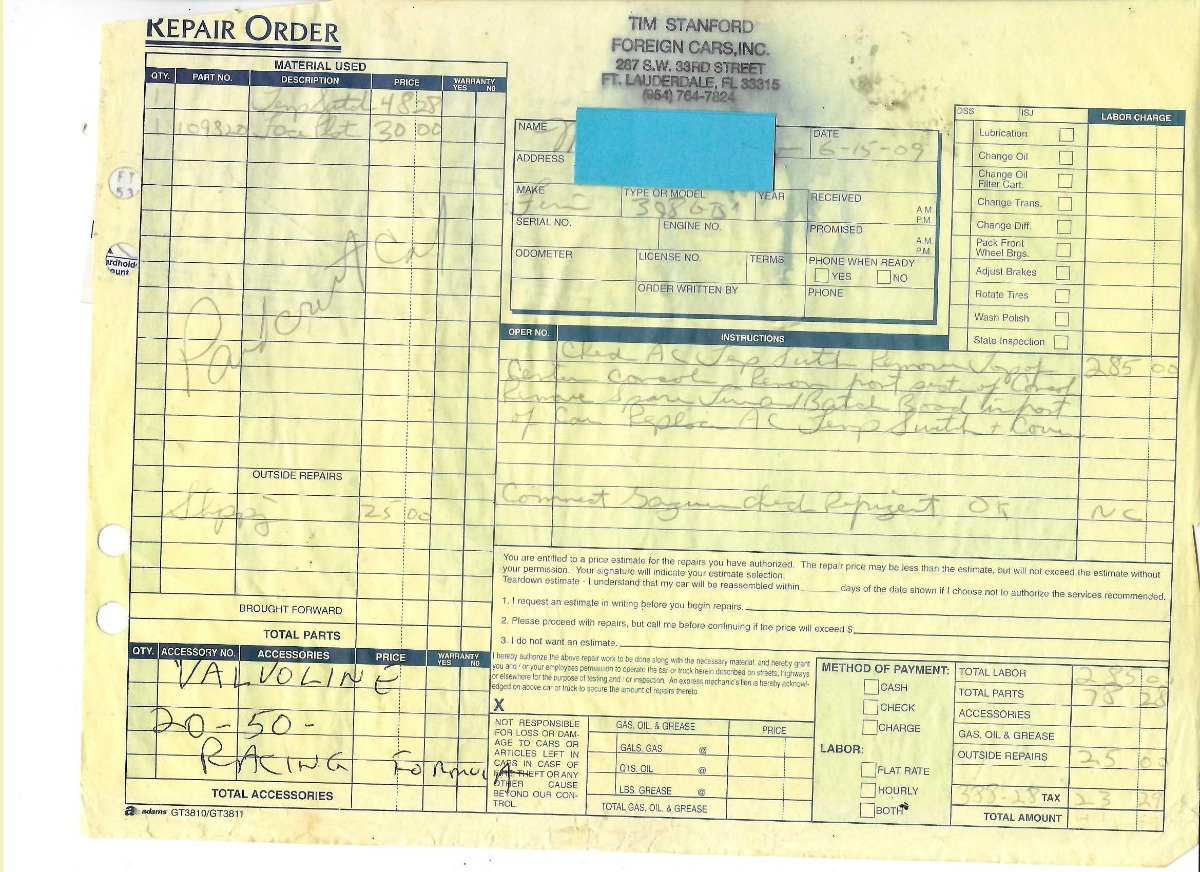 REPAIR ORDER
TIM STANFORD
FOREIGN CARS, INC.
267 S.W. 33RD STREET
FT. LAUDERDALE, FL 33315
(954) 764-7824
MATERIAL USED
QTY. PART NO. DESCRIPTION PRICE WARRANTY YES NO
1 Temp Switch 48 28
1 109820 Face Plat 30 00
FT
53
OUTSIDE REPAIRS
25 00
BROUGHT FORWARD
TOTAL PARTS
QTY. ACCESSORY NO. ACCESSORIES PRICE WARRANTY YES NO
VALVOLINE
20-50-
RACING FORMULA
TOTAL ACCESSORIES
adams GT3810/GT3811
NAME
DATE
6-15-09
ADDRESS
MAKE TYPE OR MODEL YEAR
RECEIVED A.M. P.M.
SERIAL NO. ENGINE NO.
PROMISED A.M. P.M.
ODOMETER LICENSE NO. TERMS
PHONE WHEN READY
YES NO
ORDER WRITTEN BY
PHONE
OSS ISJ LABOR CHARGE
Lubrication
Change Oil
Change Oil Filter Cart.
Change Trans.
Change Diff.
Pack Front Wheel Brgs.
Adjust Brakes
Rotate Tires
Wash Polish
State Inspection
OPER NO. INSTRUCTIONS
AC Temp Switch Remove Top of 285 00
Center Console Remove part seat of Consol
Remove Spare Tire Board
of Car Replace AC Temp Switch + Cover
OK NC
You are entitled to a price estimate for the repairs you have authorized. The repair price may be less than the estimate, but will not exceed the estimate without
your permission. Your signature will indicate your estimate selection.
Teardown estimate - I understand that my car will be reassembled within ______ days of the date shown if I choose not to authorize the services recommended.
1. I request an estimate in writing before you begin repairs.
2. Please proceed with repairs, but call me before continuing if the price will exceed $
3. I do not want an estimate.
I hereby authorize the above repair work to be done along with the necessary material, and hereby grant
you and / or your employees permission to operate the car or truck herein described on streets, highways
or elsewhere for the purpose of testing and / or inspection. An express mechanic's lien is hereby acknowl-
edged on above car or truck to secure the amount of repairs thereto
X
NOT RESPONSIBLE
FOR LOSS OR DAM-
AGE TO CARS OR
ARTICLES LEFT IN
CARS IN CASE OF
FIRE THEFT OR ANY
OTHER CAUSE
BEYOND OUR CON-
TROL.
GAS, OIL & GREASE PRICE
GALS. GAS @
QTS. OIL @
LBS. GREASE @
TOTAL GAS, OIL & GREASE
METHOD OF PAYMENT:
CASH
CHECK
CHARGE
LABOR:
FLAT RATE
HOURLY
BOTH
TOTAL LABOR 285 00
TOTAL PARTS 78 28
ACCESSORIES
GAS, OIL & GREASE
OUTSIDE REPAIRS 25 00
388.28 TAX 23 29
TOTAL AMOUNT